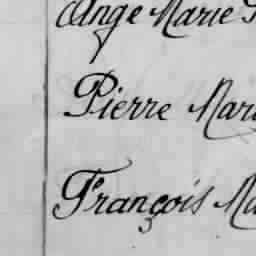 Ange Marie
Pierre
François